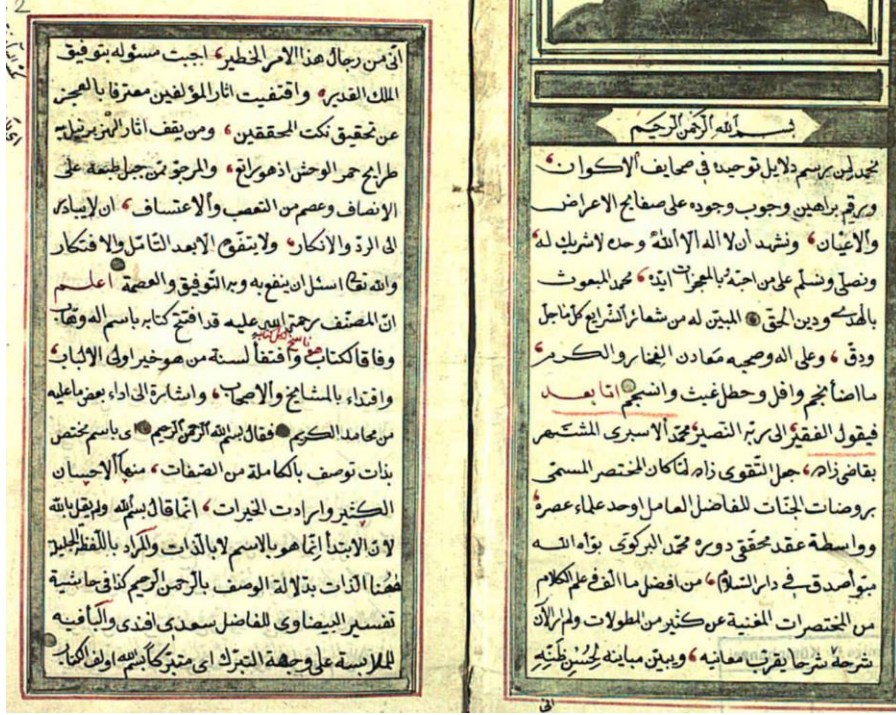 بسم الله الرحمن الرحيم
نحمد لمن برسم دلايل توحيده في صحايف الاكوان
ويرقم براهين وجوب وجوده على صفايح الاعراض
والاعيان ونشهد ان لا اله الا الله وحده لا شريك له
ونصلى ونسلم على من احته بالمعجزات ايته محمد المبعوث
بالهدى ودين الحق المبين له من شعائر الشرايع كل ما جل
ودق وعلى اله وصحبه معادن الفخار والكرم
ما اضأ نجم وافل وحطل غيث وانسجم اما بعد
فيقول الفقير الى ربه النصير محمد الاسبرى المشتهر
بقاضى زاده جعل التقوى زاده لما كان المختصر المسمى
بروضات الجنات للفاضل العامل اوحد علماء عصره
وواسطة عقد محققى دوره محمد البركوى بوأه الله
مبوأ صدق في دار السلام من افضل ما الف في علم الكلام
من المختصرات المغنية عن كثير من المطولات ولم ار الآن
شرحه شرحا يقرب معانيه ويبين مباينه لحسن ظنه
الى
2
انى من رجال هذا الامر الخطير اجبت مسئوله بتوفيق
الملك القدير واقتفيت اثار المؤلفين معترفا بالعجز
عن تحقيق نكت المحققين ومن يقف اثار الهزبر تيل به
طرايح حمر الوحش اذ هو راتع والمرجو ممن جبل طبعه على
الانصاف وعصم من التعصب والاعتساف ان لا يبادر
الى الرد والانكار ولا يتفوه الا بعد التأمل والافتكار
والله تعا اسئل ان ينفع به وبه التوفيق والعصمة اعلم
ان المصنف رحمة الله عليه قد افتتح كتابه باسم اله وهاب
وفاقا لكتاب هو ناسخ لكل كتابه واقتفأ لسنة من هو خير اولى الالباب
واقتداء بالمشايخ والاصحاب واشارة الى اداء بعض ما عليه
من محامد الكريم فقال بسم الله الرحمن الرحيم اى باسم مختص
بذات توصف بالكاملة من الصفات منها الاحسان
الكثير وارادت الخيرات انما قال بسم الله ولم يقل بالله
لان الابتدأ انما هو بالاسم لا بالذات والمراد باللفظ الجليل
ههنا الذات بدلالة الوصف بالرحمن الرحيم كذا في حاشية
تفسير البيضاوى للفاضل سعدى افندى والبأ فيه
للملابسة على وجهة التبرك اى متبركا بسم الله اولف الكتاب